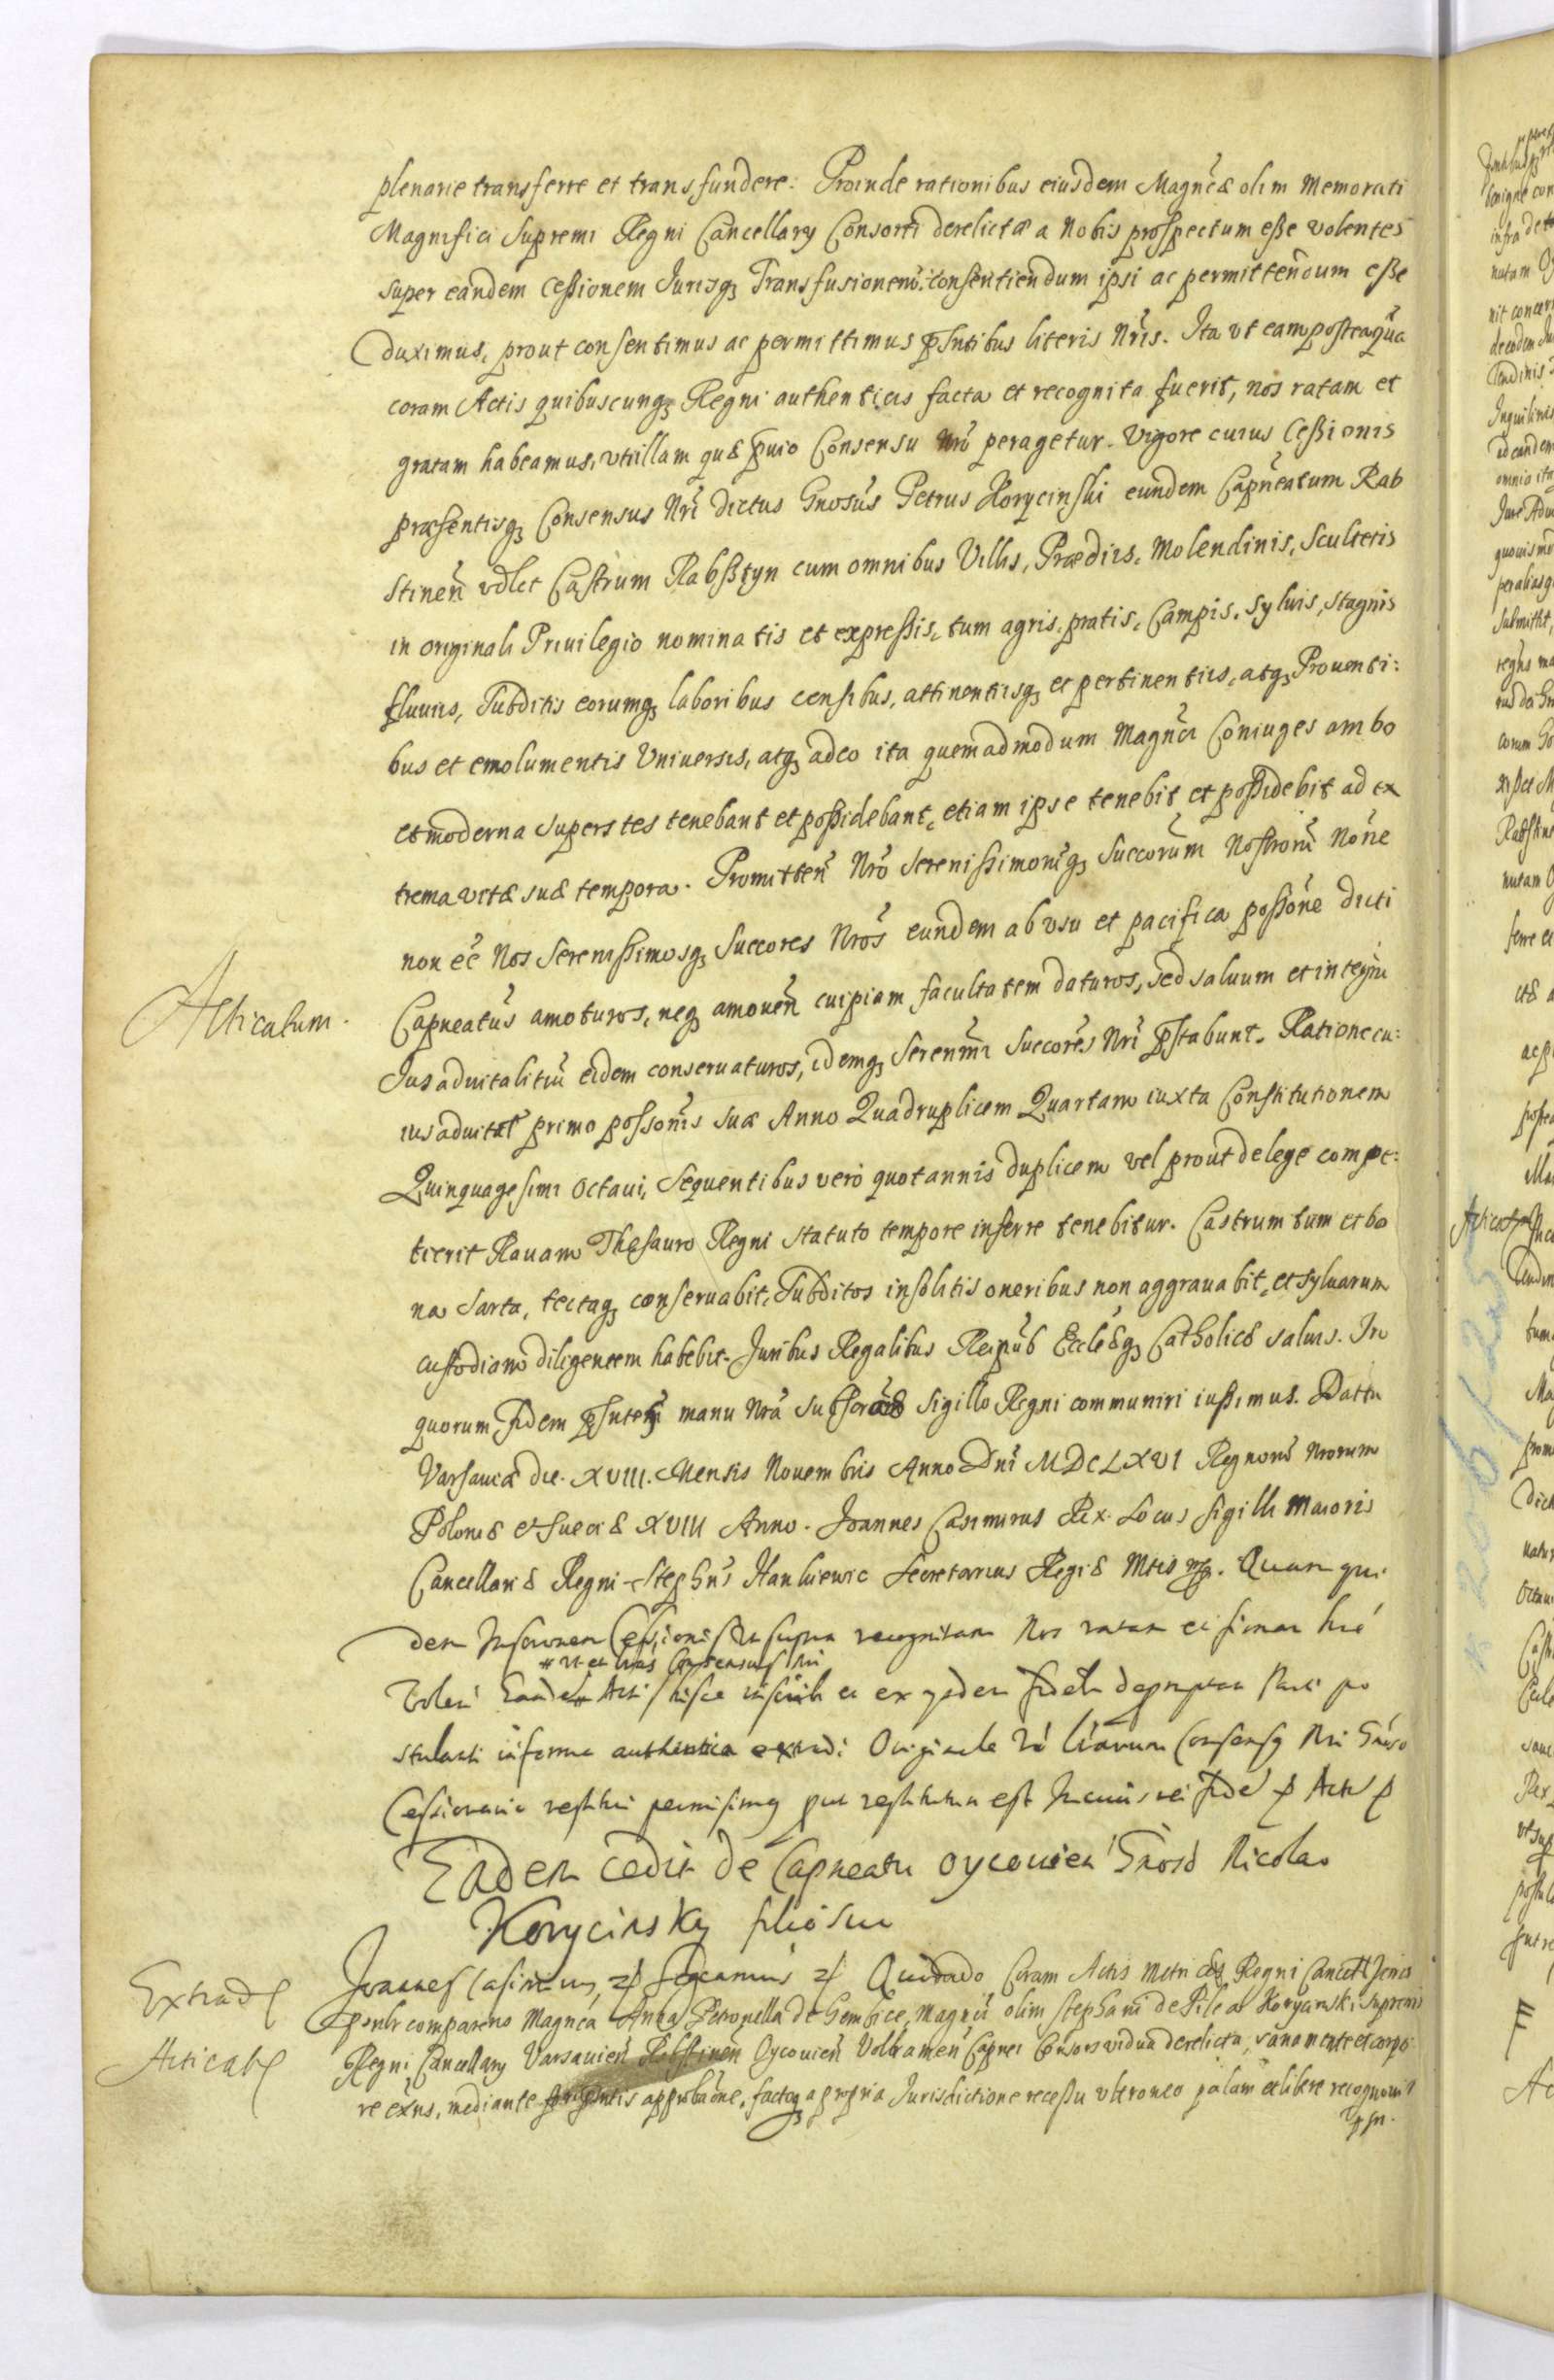 plenarie transferre et transfundere. Proinde rationibus eiusdem Magncæ olim Memorati
Magnifici Supremi Regni Cancellary Consorti derelictæ a Nobis prospectum esse volentes
super eandem Cessionem Jurisq Transfusionem consentiendum ipsi ac permittendum esse
duximus, prout consentimus ac permittimus pntibus literis Nris. Ita vt eam posteaqua
coram Actis quibuscunq Regni authenticis facta et recognita fuerit, nos ratam et
gratam habeamus, vtillam quæ pvio Consensu Nro peragetur. Vigore cuius Cessionis
præsentisq Consensus Nri dictus Gnosus Petrus Korycinski eundem Capneatum Rab
stinen vdlct Castrum Rabsztyn cum omnibus Villis, Prædiis, Molendinis, Scultetis
in originali Priuilegio nominatis et expressis, tum agris, pratis, Campis, Syluis, Stagnis
fluuiis, Subditis eorumq laboribus censibus, attinentiisq et pertinentiis, atq Prouenti:
bus et emolumentis Vniuersis, atq adeo ita quemadmodum Magnci Coniuges ambo
et moderna superstes tenebant et possidebant, etiam ipse tenebit et possidebit ad ex
trema vitæ suæ tempora. Promitten Nro Serenissimorūq Succorum Nostrorū Noīne
non eē Nos Serenissimosq Succores Nros eundem ab vsu et pacifica possone dicti
Capneatus amoturos, neq amouen cuipiam facultatem daturos, sed saluum et integru
Articatum.
Jus aduitalitiū eidem conseruaturos, idemq Serenmi Succores Nri pstabunt. Ratione cu:
ius aduitat primo possonis suæ Anno Quadruplicem Quartam iuxta Constitutionem
Quinquagesimi Octaui, Sequentibus vero quotannis duplicem vel prout de lege compe:
tierit Rauam Thesauro Regni statuto tempore inferre tenebitur. Castrum tum et bo
na Sarta, tectaq conseruabit, Subditos insolitis oneribus non aggrauabit, et syluarum
custodiam diligentem habebit. Juribus Regalibus Reipub Eccleæq Catholicæ saluis. In
quorum fidem manu Nra Sigillo Regni communiri iussimus. Dattu
Varsauiæ die XVIII. Mensis Nouembris Anno Dni MDCLXVI Regnorū Nrorum
Poloniæ et Sueciæ XVIII Anno. Joannes Casimirus Rex. Locus Sigilli Maioris
Cancellariæ Regni. Stephns Hankiewic Secretarius Regiæ Mtis. Quam qui
dem Cessionis supra recognitam Nos ratam et firmam
Volen Actis hisce et ex ysdem fideli Parti po
stulanti in forma authentica extradi Originale Consensq Nri Gnoso
Cessionario restitui permisimq restitutum est In cuius rei fidē
Eadem cedit de Capneatu Oycouien Gnoso Nicolao
Korycinsky filio suo
Extradt
Joannes Casimirus, Quidado Coram Actis Metrices Regni
pnlr comparens Magnca Anna Petronella de Gembice, Magnci olim Stephani de Pilca Korycinski Supremi
Articatt
Regni Cancellary Varsauien Oycouien Volbramen Capnei Consors vidua derelicta, sana mente et corpo
re exns, mediante approbaone, factoq a propria Jurisdictione recessu vltroneo palam et libere recognouit